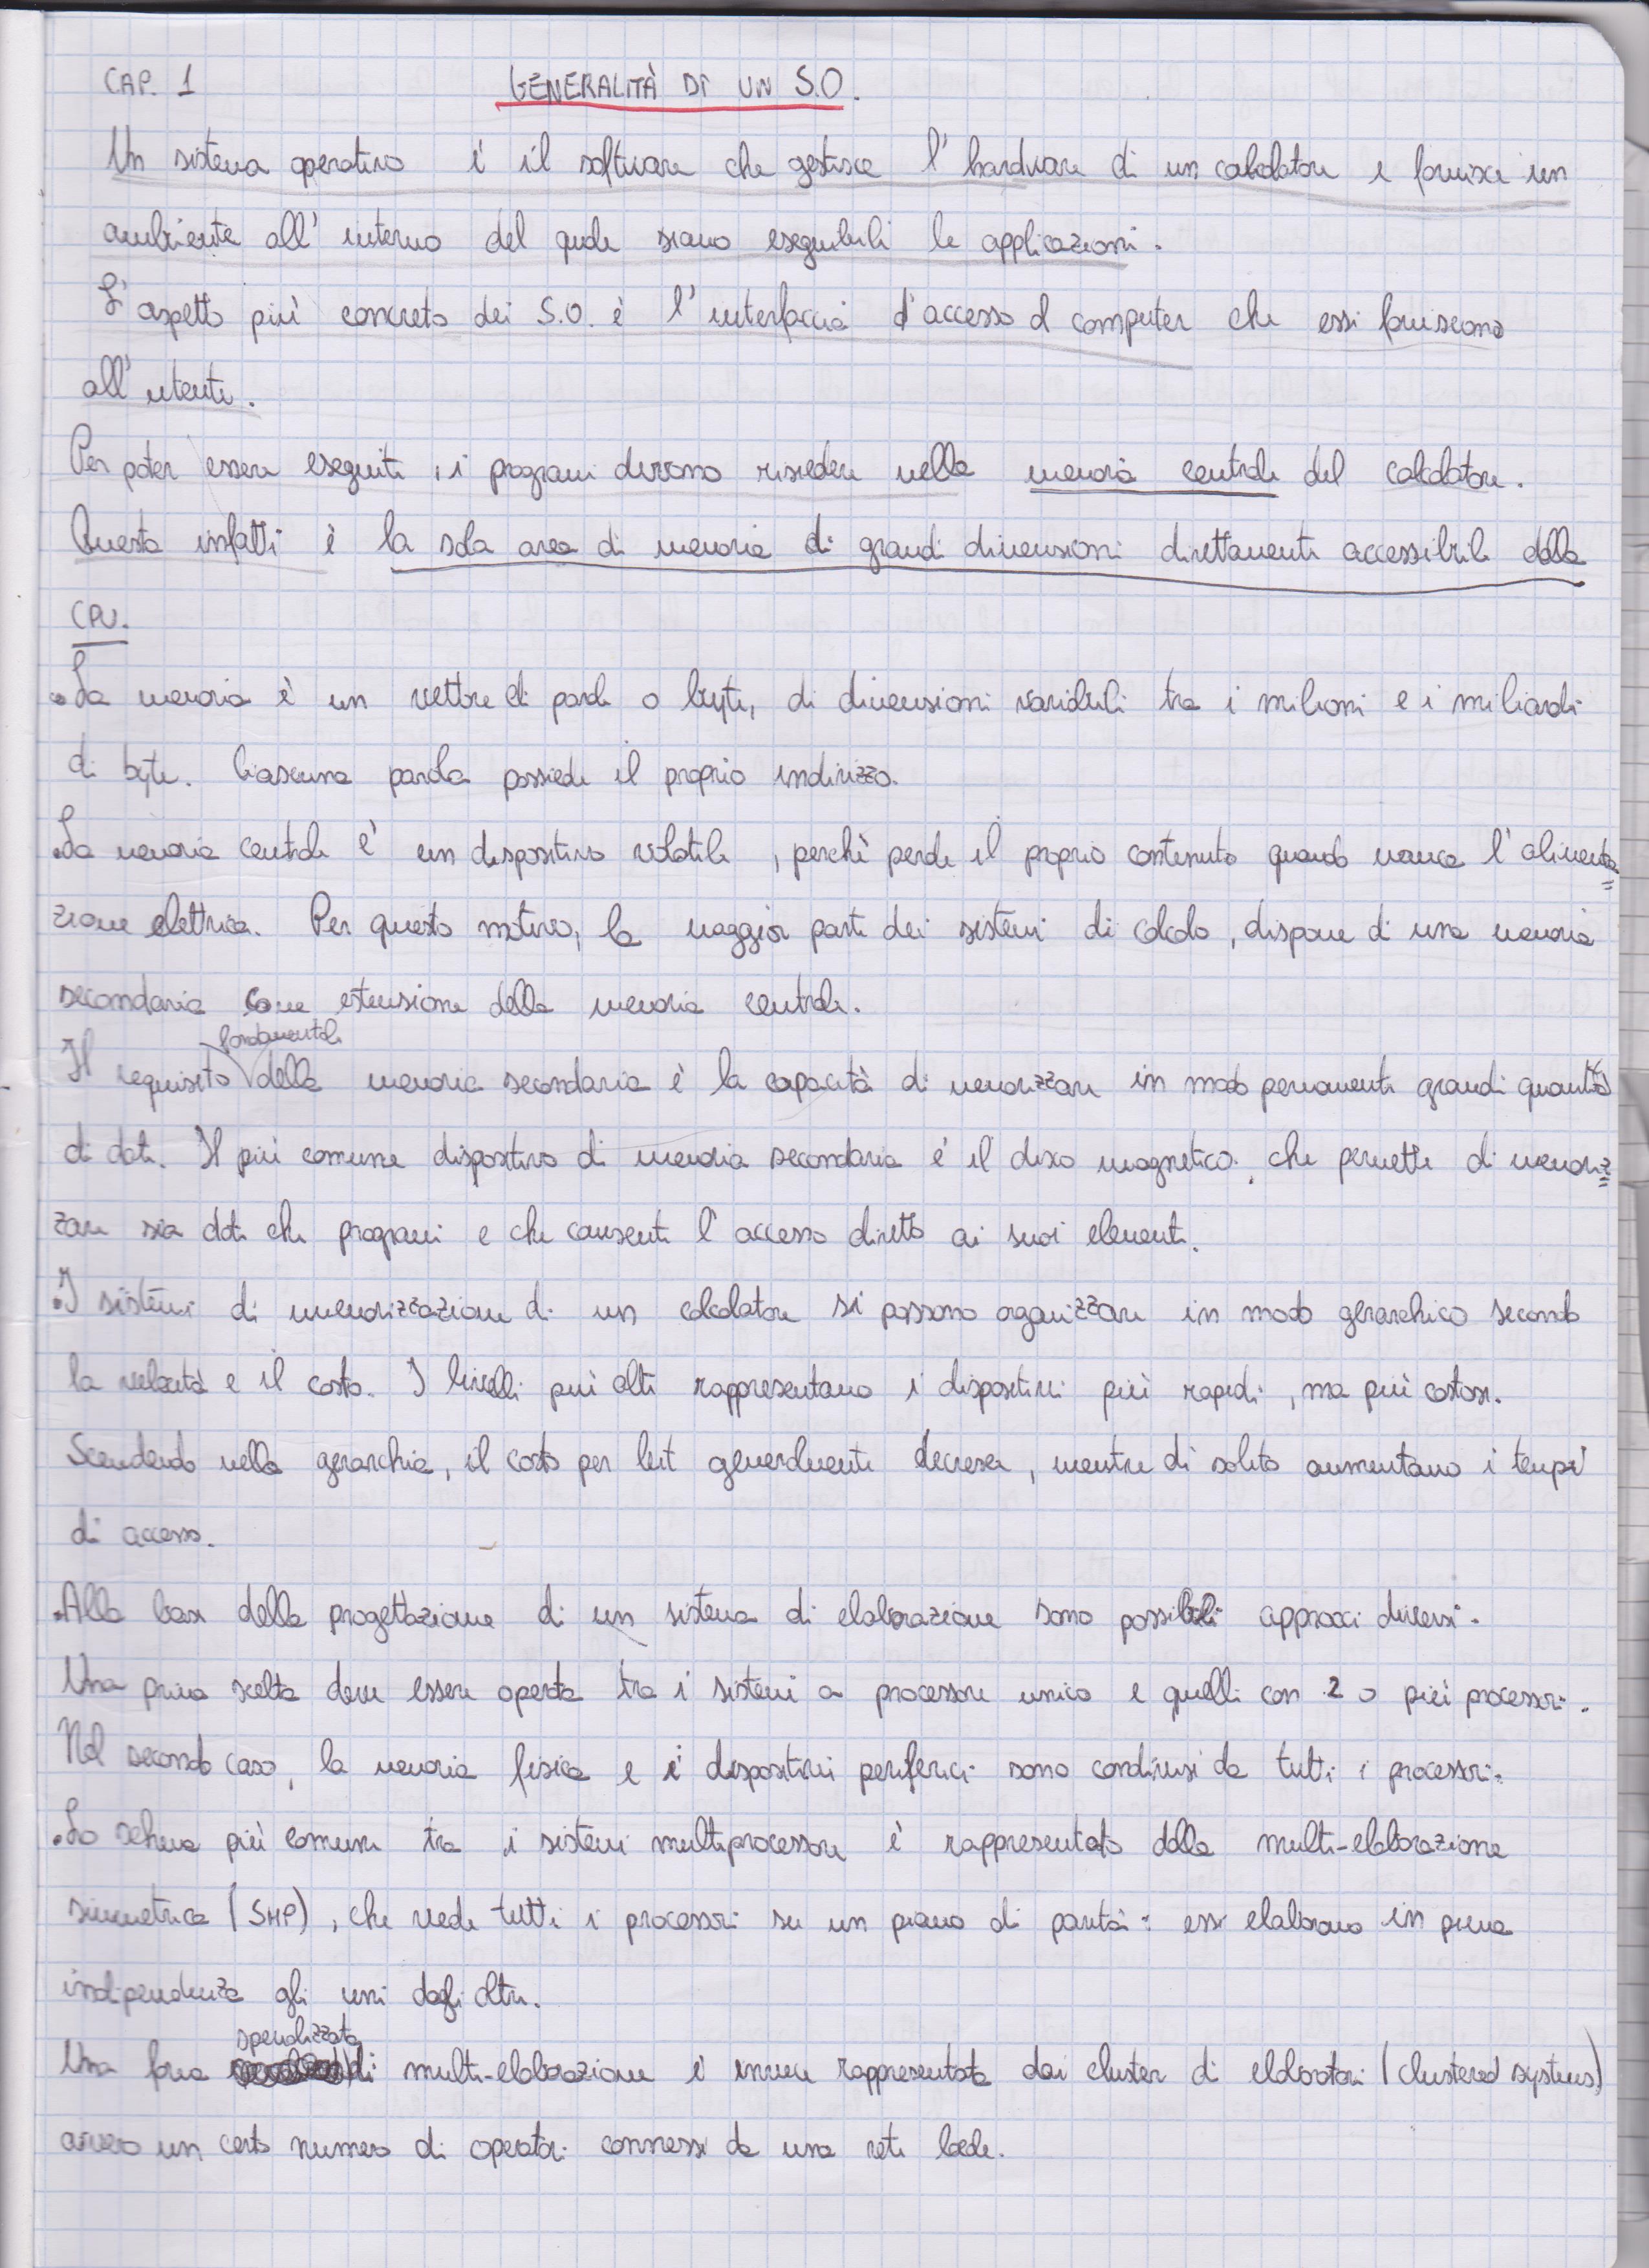 CAP. 1 GENERALITÀ DI UN S.O.
Un sistema operativo è il software che gestisce l'hardware di un calcolatore e fornisce un
ambiente all'interno del quale siano eseguibili le applicazioni.
L'aspetto più concreto dei S.O. è l'interfaccia d'accesso al computer che essi forniscono
all'utente.
Per poter essere eseguiti, i programmi devono risiedere nella memoria centrale del calcolatore.
Questa infatti è la sola area di memoria di grandi dimensioni direttamente accessibile dalla
CPU.
• La memoria è un vettore di parole o byte, di dimensioni variabili tra i milioni e i miliardi
di byte. Ciascuna parola possiede il proprio indirizzo.
• La memoria centrale è un dispositivo volatile, perchè perde il proprio contenuto quando manca l'alimenta=
zione elettrica. Per questo motivo, la maggior parte dei sistemi di calcolo, dispone di una memoria
secondaria come estensione della memoria centrale.
Il requisito fondamentale della memoria secondaria è la capacità di memorizzare in modo permanente grandi quantità
di dati. Il più comune dispositivo di memoria secondaria è il disco magnetico, che permette di memoriz=
zare sia dati che programmi e che consente l'accesso diretto ai suoi elementi.
• I sistemi di memorizzazione di un calcolatore si possono organizzare in modo gerarchico secondo
la velocità e il costo. I livelli più alti rappresentano i dispositivi più rapidi, ma più costosi.
Scendendo nella gerarchia, il costo per bit generalmente decresce, mentre di solito aumentano i tempi
di accesso.
• Alla base della progettazione di un sistema di elaborazione sono possibili approcci diversi.
Una prima scelta deve essere operata tra i sistemi a processore unico e quelli con 2 o più processori.
Nel secondo caso, la memoria fisica e i dispositivi periferici sono condivisi da tutti i processori.
• Lo schema più comune tra i sistemi multiprocessore è rappresentato dalla multi-elaborazione
simmetrica (SMP), che vede tutti i processori su un piano di parità: essi elaborano in piena
indipendenza gli uni dagli altri.
Una forma specializzata di multi-elaborazione è invece rappresentata dai cluster di elaboratori (clustered systems)
ovvero un certo numero di operatori connessi da una rete locale.